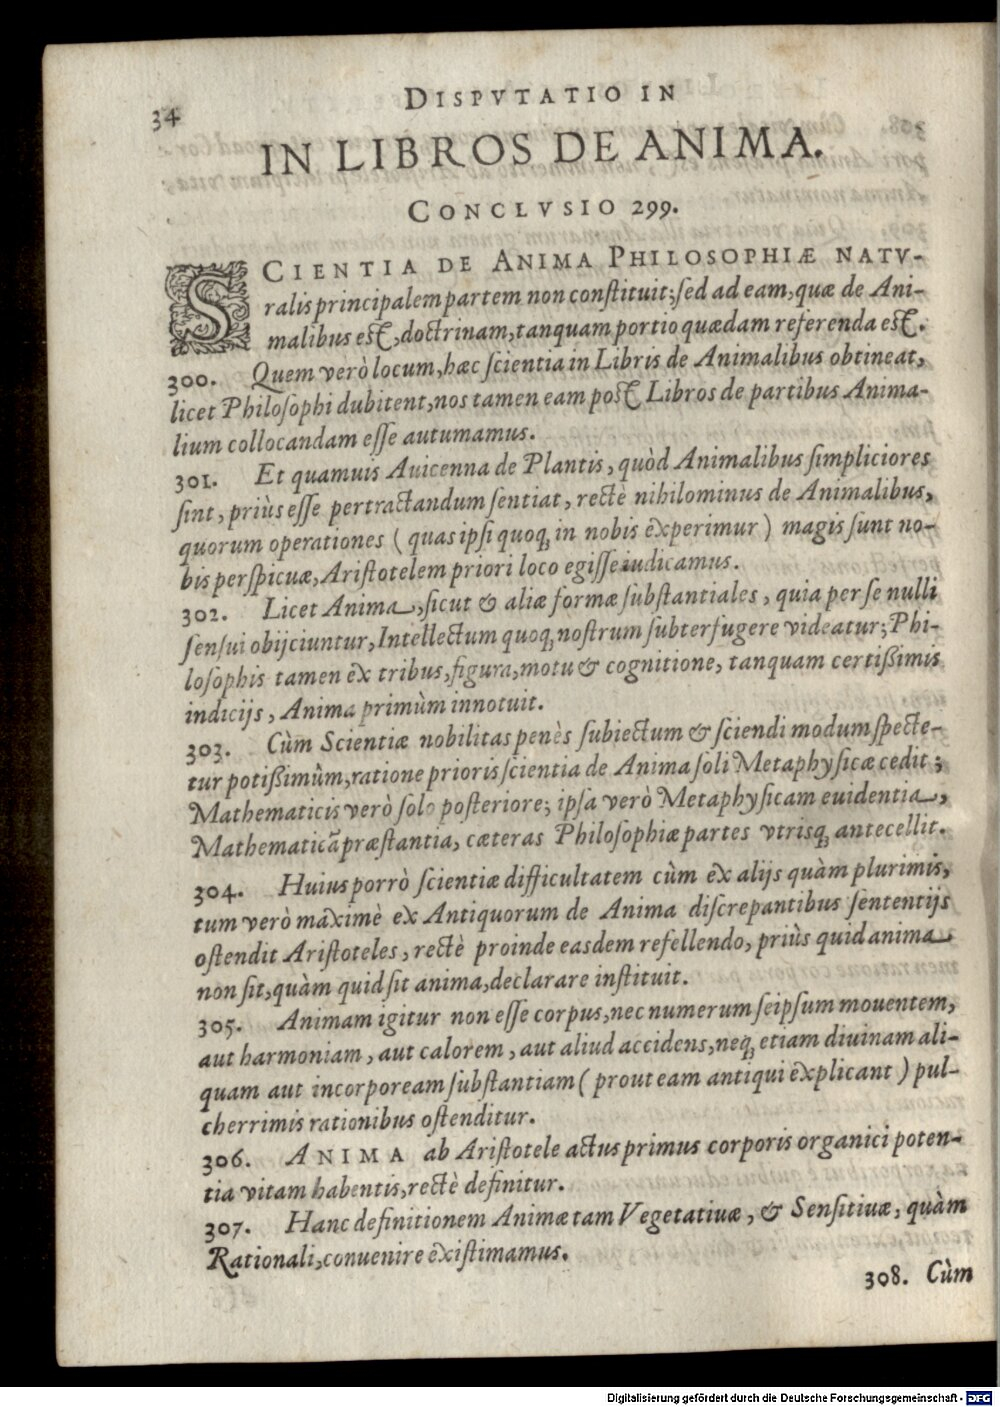 34
DISPVTATIO IN
IN LIBROS DE ANIMA.
CONCLVSIO 299.
SCIENTIA DE ANIMA PHILOSOPHIÆ NATV-
ralis principalem partem non conſtituit; ſed ad eam, quæ de Ani-
malibus eſt, doctrinam, tanquam portio quædam referenda eſt.
300. Quem verò locum, hæc ſcientia in Libris de Animalibus obtineat,
licet Philoſophi dubitent, nos tamen eam poſt Libros de partibus Anima-
lium collocandam eſſe autumamus.
301. Et quamuis Auicenna de Plantis, quòd Animalibus ſimpliciores
ſint, priùs eſſe pertractandum ſentiat, rectè nihilominus de Animalibus,
quorum operationes (quas ipſi quoq; in nobis experimur) magis ſunt no-
bis perſpicuæ, Ariſtotelem priori loco egiſſe iudicamus.
302. Licet Anima, ſicut & aliæ formæ ſubſtantiales, quia per ſe nulli
ſenſui obijciuntur, Intellectum quoq; noſtrum ſubterfugere videatur; Phi-
loſophis tamen ex tribus, figura, motu & cognitione, tanquam certißimis
indicijs, Anima primùm innotuit.
303. Cùm Scientiæ nobilitas penès ſubiectum & ſciendi modum ſpecte-
tur potißimùm, ratione prioris ſcientia de Anima ſoli Metaphyſicæ cedit;
Mathematicis verò ſolo poſteriore; ipſa verò Metaphyſicam euidentia,
Mathematicā præſtantia, cæteras Philoſophiæ partes vtrisq; antecellit.
304. Huius porrò ſcientiæ difficultatem cùm ex alijs quàm plurimis,
tum verò maximè ex Antiquorum de Anima diſcrepantibus ſententijs
oſtendit Ariſtoteles, rectè proinde easdem refellendo, priùs quid anima
non ſit, quàm quid ſit anima, declarare inſtituit.
305. Animam igitur non eſſe corpus, nec numerum ſeipſum mouentem,
aut harmoniam, aut calorem, aut aliud accidens, neq; etiam diuinam ali-
quam aut incorpoream ſubſtantiam (prout eam antiqui explicant) pul-
cherrimis rationibus oſtenditur.
306. ANIMA ab Ariſtotele actus primus corporis organici poten-
tia vitam habentis, rectè definitur.
307. Hanc definitionem Animæ tam Vegetatiuæ, & Senſitiuæ, quàm
Rationali, conuenire exiſtimamus.
308. Cùm
Digitalisierung gefördert durch die Deutsche Forschungsgemeinschaft - DFG